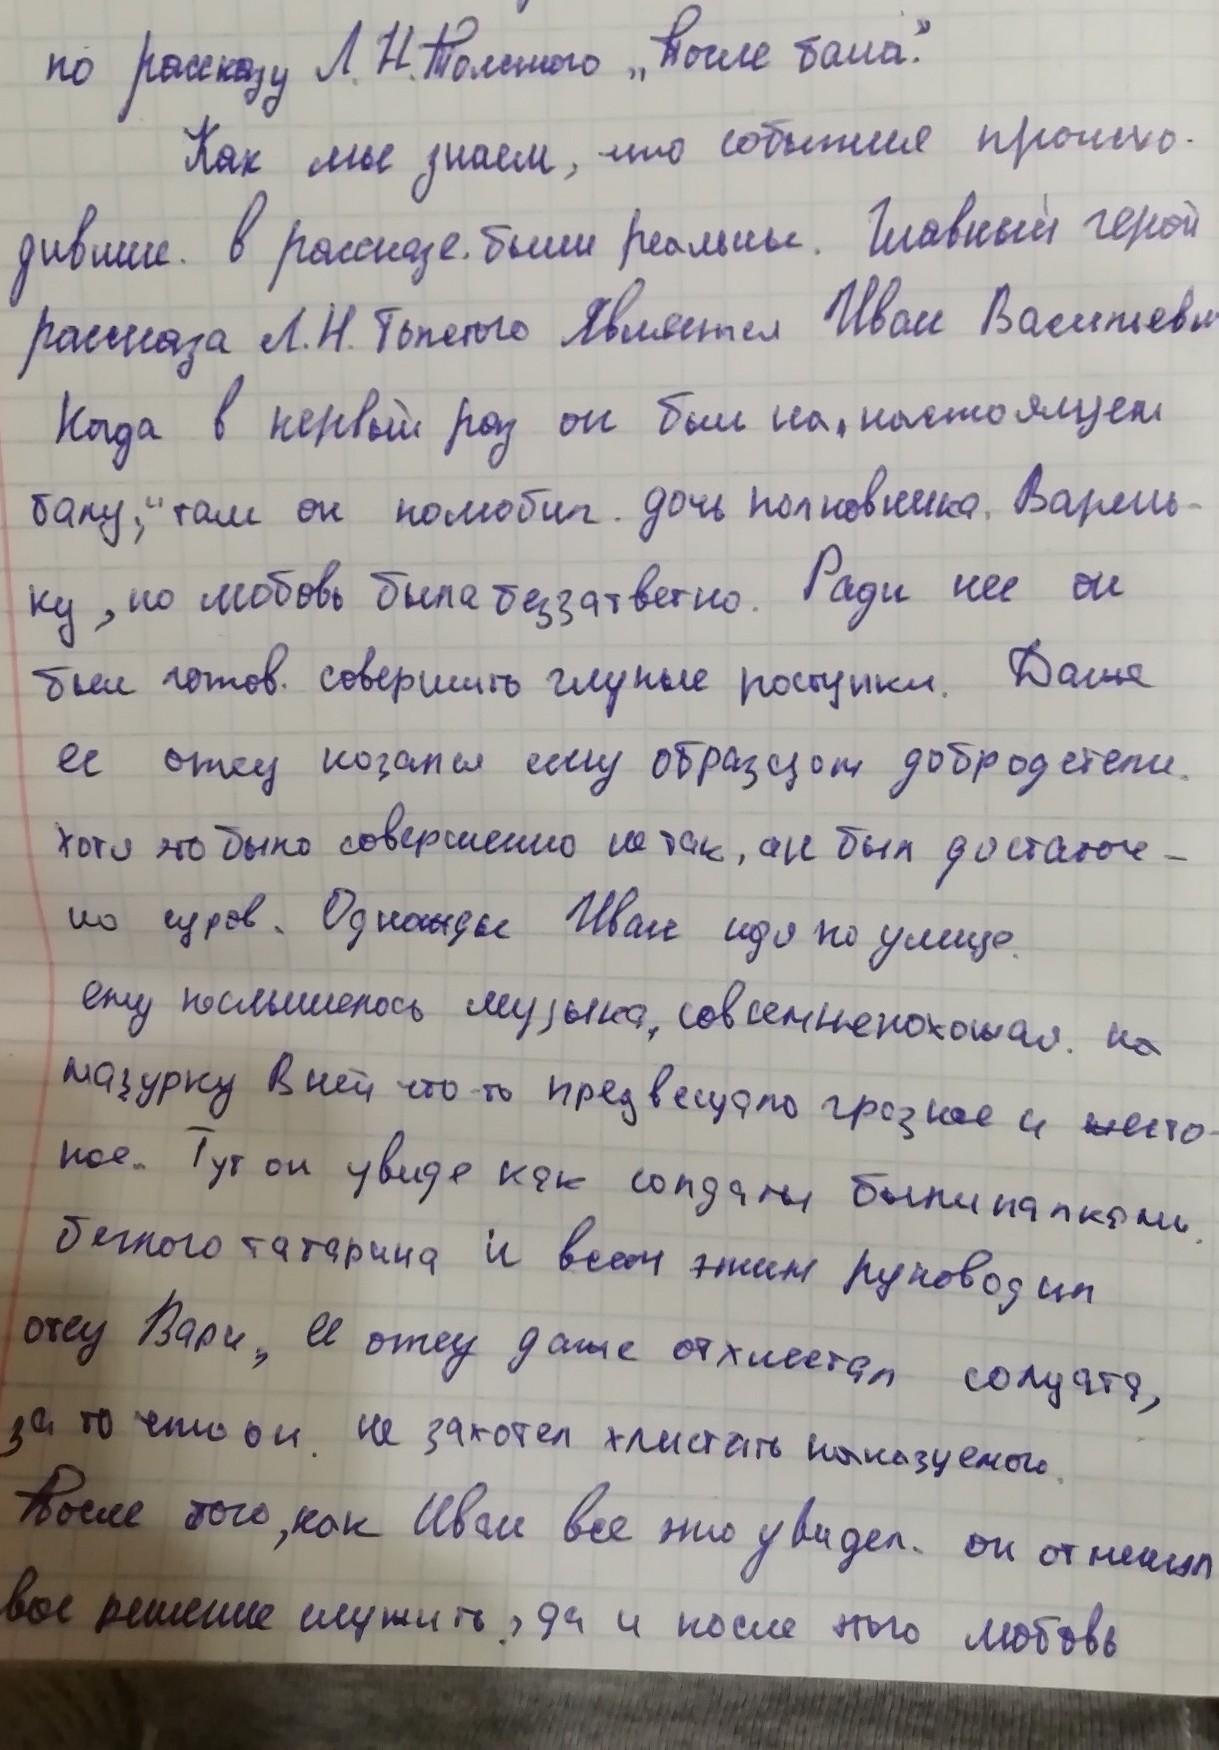 по рассказу Л.Н.Толстого „После бала."
Как мы знаем, что события происхо-
дившие в рассказе были реальны. Главный герой
рассказа Л.Н. Толстого Является Иван Васильевич
Когда в первый раз он был на „настоящем
балу," там он полюбил дочь полковника Вареньку
ку, но любовь была беззатветно. Ради нее он
был готов совершить глупые поступки. Даже
ее отец казался ему образцом добродетели.
Хотя это было совершенно не так, он был достаточ-
но суров. Однажды Иван идя по улице.
ему послышелось музыка, совсем непохожая на
мазурку В ней что-то предвещало грозное и жесто-
кое. Тут он увиде как солдаты были палками
беглого татарина и всем этим руководил
отец Вари, Ее отец даже отхлестал солдата,
за то что он не захотел хлистать наказуемого.
После того, как Иван все это увидел. он отменил
вое решение служить, да и после этого любовь